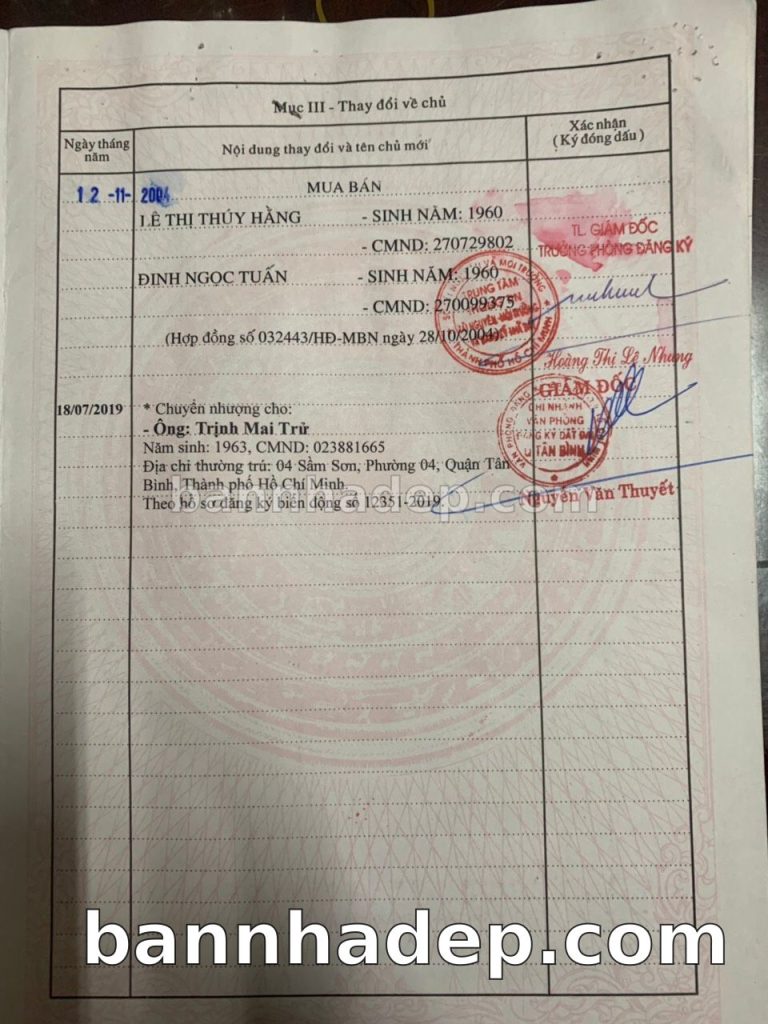 Mục III - Thay đổi về chủ
Ngày tháng năm
Nội dung thay đổi và tên chủ mới
Xác nhận
( Ký đóng dấu )
12 -11- 2004
MUA BÁN
LÊ THỊ THÚY HẰNG - SINH NĂM: 1960
- CMND: 270729802
TL. GIÁM ĐỐC
TRƯỞNG PHÒNG ĐĂNG KÝ
ĐINH NGỌC TUẤN - SINH NĂM: 1960
- CMND: 270099375
(Hợp đồng số 032443/HĐ-MBN ngày 28/10/2004)
TRUNG TÂM
THÀNH PHỐ HỒ CHÍ MINH
Hoàng Thị Lê Nhung
GIÁM ĐỐC
18/07/2019 * Chuyển nhượng cho:
- Ông: Trịnh Mai Trử
Năm sinh: 1963, CMND: 023881665
Địa chỉ thường trú: 04 Sầm Sơn, Phường 04, Quận Tân
Bình, Thành phố Hồ Chí Minh.
Theo hồ sơ đăng ký biến động số 12351-2019.
CHI NHÁNH
VĂN PHÒNG
ĐĂNG KÝ ĐẤT ĐAI
Q.TÂN BÌNH
Nguyễn Văn Thuyết
bannhadep.com
bannhadep.com